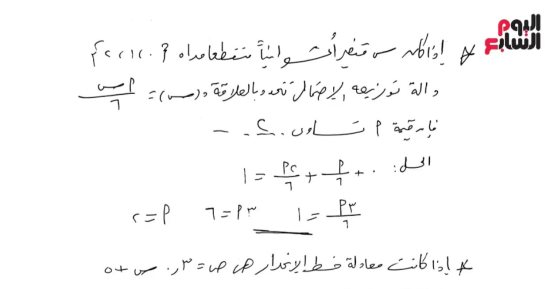 اليوم السابع
* إذا كان س متغيراً عشوائياً متقطعاً مداه {٠، ١، ٢}
دالة توزيعه الاحتمالى تتحدد بالعلاقة د(س) = أس/٦
فإن قيمة أ تساوى ...
الحل: ٠ + أ/٦ + ٢أ/٦ = ١
٣أ/٦ = ١ ٣أ = ٦ أ = ٢
* إذا كانت معادلة خط الانحدار هى ص = ٣,٠ س + ٥